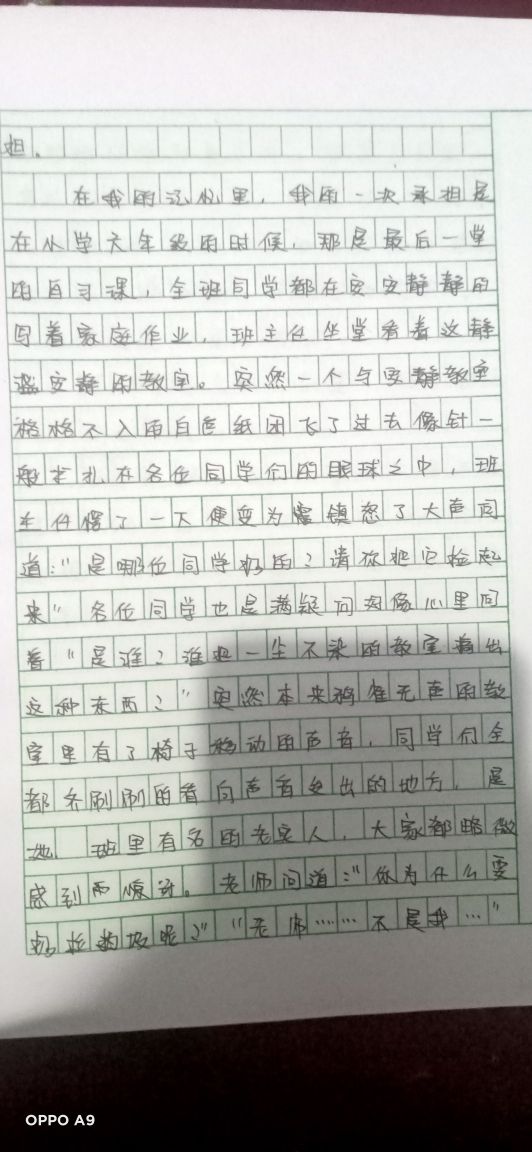 担。
在我的记忆里，我的一次承担是
在小学六年级的时候，那是最后一堂
的自习课，全班同学都在安安静静的
写着家庭作业，班主任坐堂看着这静
谧安静的教室。突然一个与安静教室
格格不入的白色纸团飞了过去像针一
般扎在各位同学们的眼球之中，班
主任愣了一下便变为震怒了大声问
道："是哪位同学扔的？请你把它捡起
来"各位同学也是满疑问好像心里问
着"是谁？谁把一尘不染的教室弄出
这种东西？"突然本来鸦雀无声的教
室里有了椅子移动的声音，同学们全
都齐刷刷的看向声音处出的地方，是
他 班里有名的老实人，大家都略微
感到而惊讶。老师问道："你为什么要
扔垃圾呢？""老师……不是我…"
OPPO A9